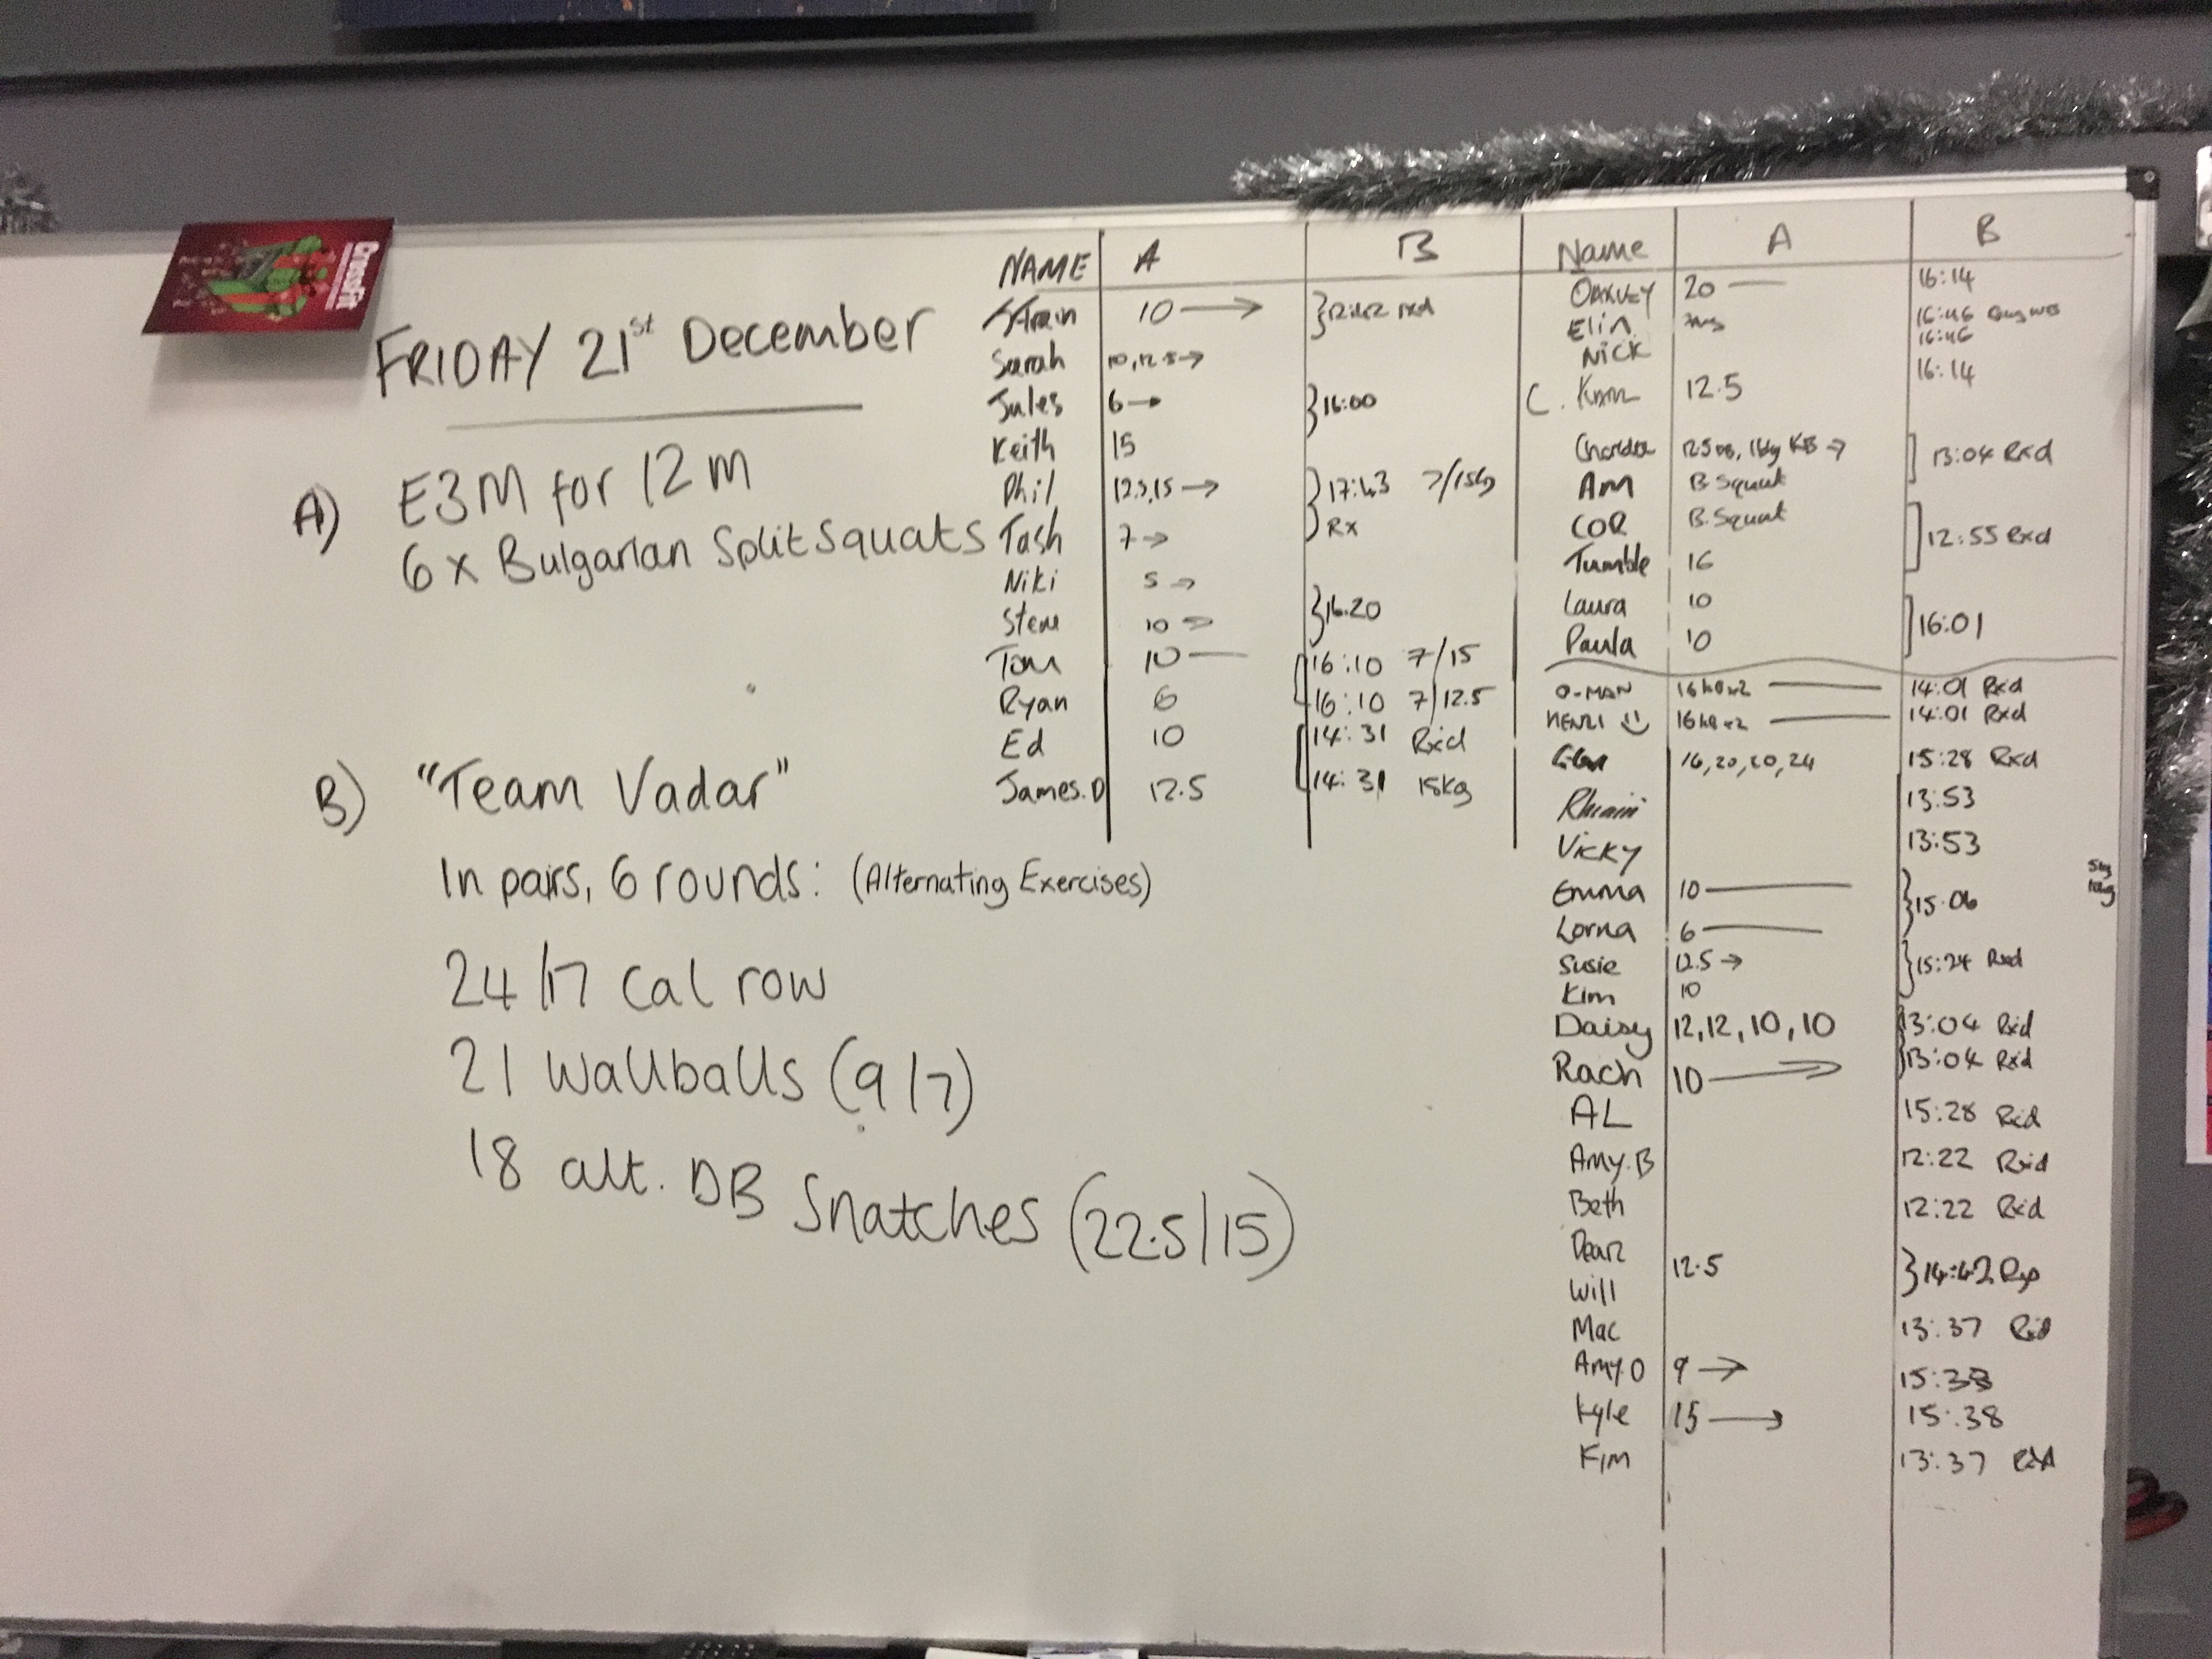 CrossFit
FRIDAY 21st December
A) E3M for 12m
6 x Bulgarian Split Squats
B) "Team Vadar"
In pairs, 6 rounds: (Alternating Exercises)
24/17 Cal row
21 Wallballs (9/7)
18 alt. DB Snatches (22.5/15)
NAME A B
10 → rxd
Sarah 10, 12.5 →
Jules 6 → } 16:00
Keith 15
Phil 12.5, 15 → } 17:43 7/15kg
Tash 7 → } Rx
Niki 5 →
Steve 10 → } 16.20
Tom 10 — 16:10 7/15
Ryan 6 16:10 7/12.5
Ed 10 14:31 Rxd
James.D 12.5 14:31 15kg
Name A B
OAKLEY 20 — 16:14
Elin 16:46
NICK 16:46
C. 12.5 16:14
KB → 13:04 Rxd
Am B Squat
COR B. Squat 12:55 Rxd
Tumble 16
Laura 10 16:01
Paula 10
O-MAN 16kg x2 — 14:01 Rxd
HENRI 16kg x2 — 14:01 Rxd
16, 20, 20, 24 15:28 Rxd
13:53
Vicky 13:53
Emma 10 — } 15.06
Lorna 6 —
Susie 12.5 → } 15:24 Rxd
Kim 10
Daisy 12, 12, 10, 10 13:04 Rxd
Rach 10 → 13:04 Rxd
AL 15:28 Rxd
Amy.B 12:22 Rxd
Beth 12:22 Rxd
12.5 } 14:42
Will
Mac 13:37 Rxd
Amy.O 9 → 15:38
Kyle 15 → 15:38
Kim 13:37 Rxd